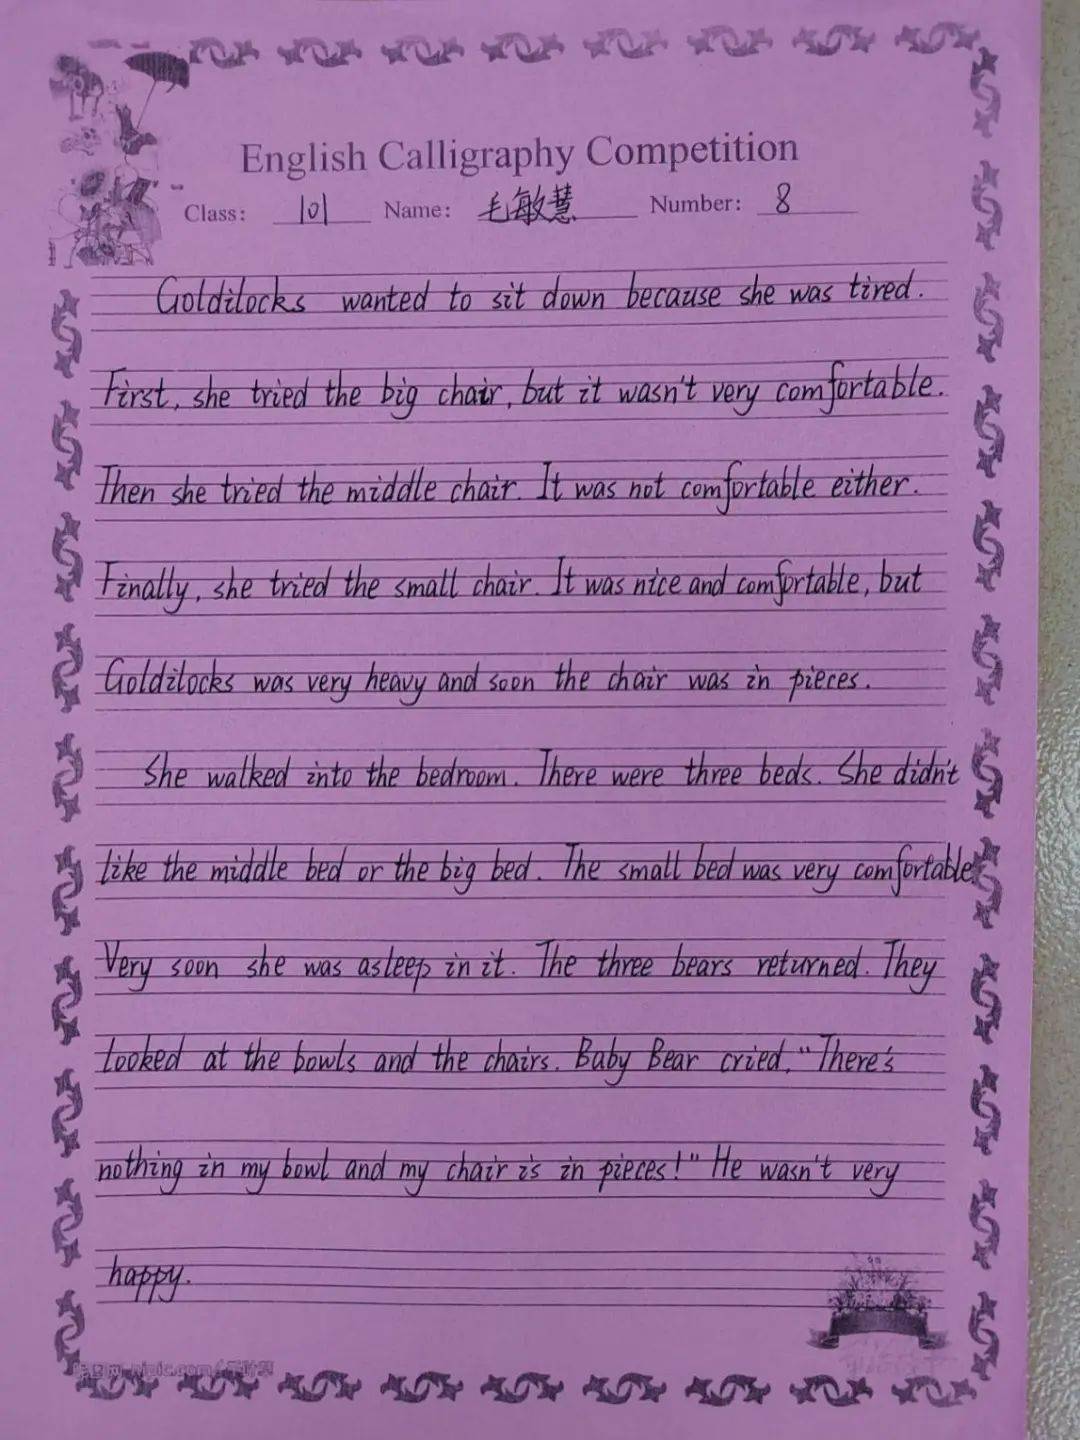 English Calligraphy Competition
Class: 101 Name: 毛敏慧 Number: 8
Goldilocks wanted to sit down because she was tired.
First, she tried the big chair, but it wasn't very comfortable.
Then she tried the middle chair. It was not comfortable either.
Finally, she tried the small chair. It was nice and comfortable, but
Goldilocks was very heavy and soon the chair was in pieces.
She walked into the bedroom. There were three beds. She didn't
like the middle bed or the big bed. The small bed was very comfortable.
Very soon she was asleep in it. The three bears returned. They
looked at the bowls and the chairs. Baby Bear cried, "There's
nothing in my bowl and my chair is in pieces!" He wasn't very
happy.